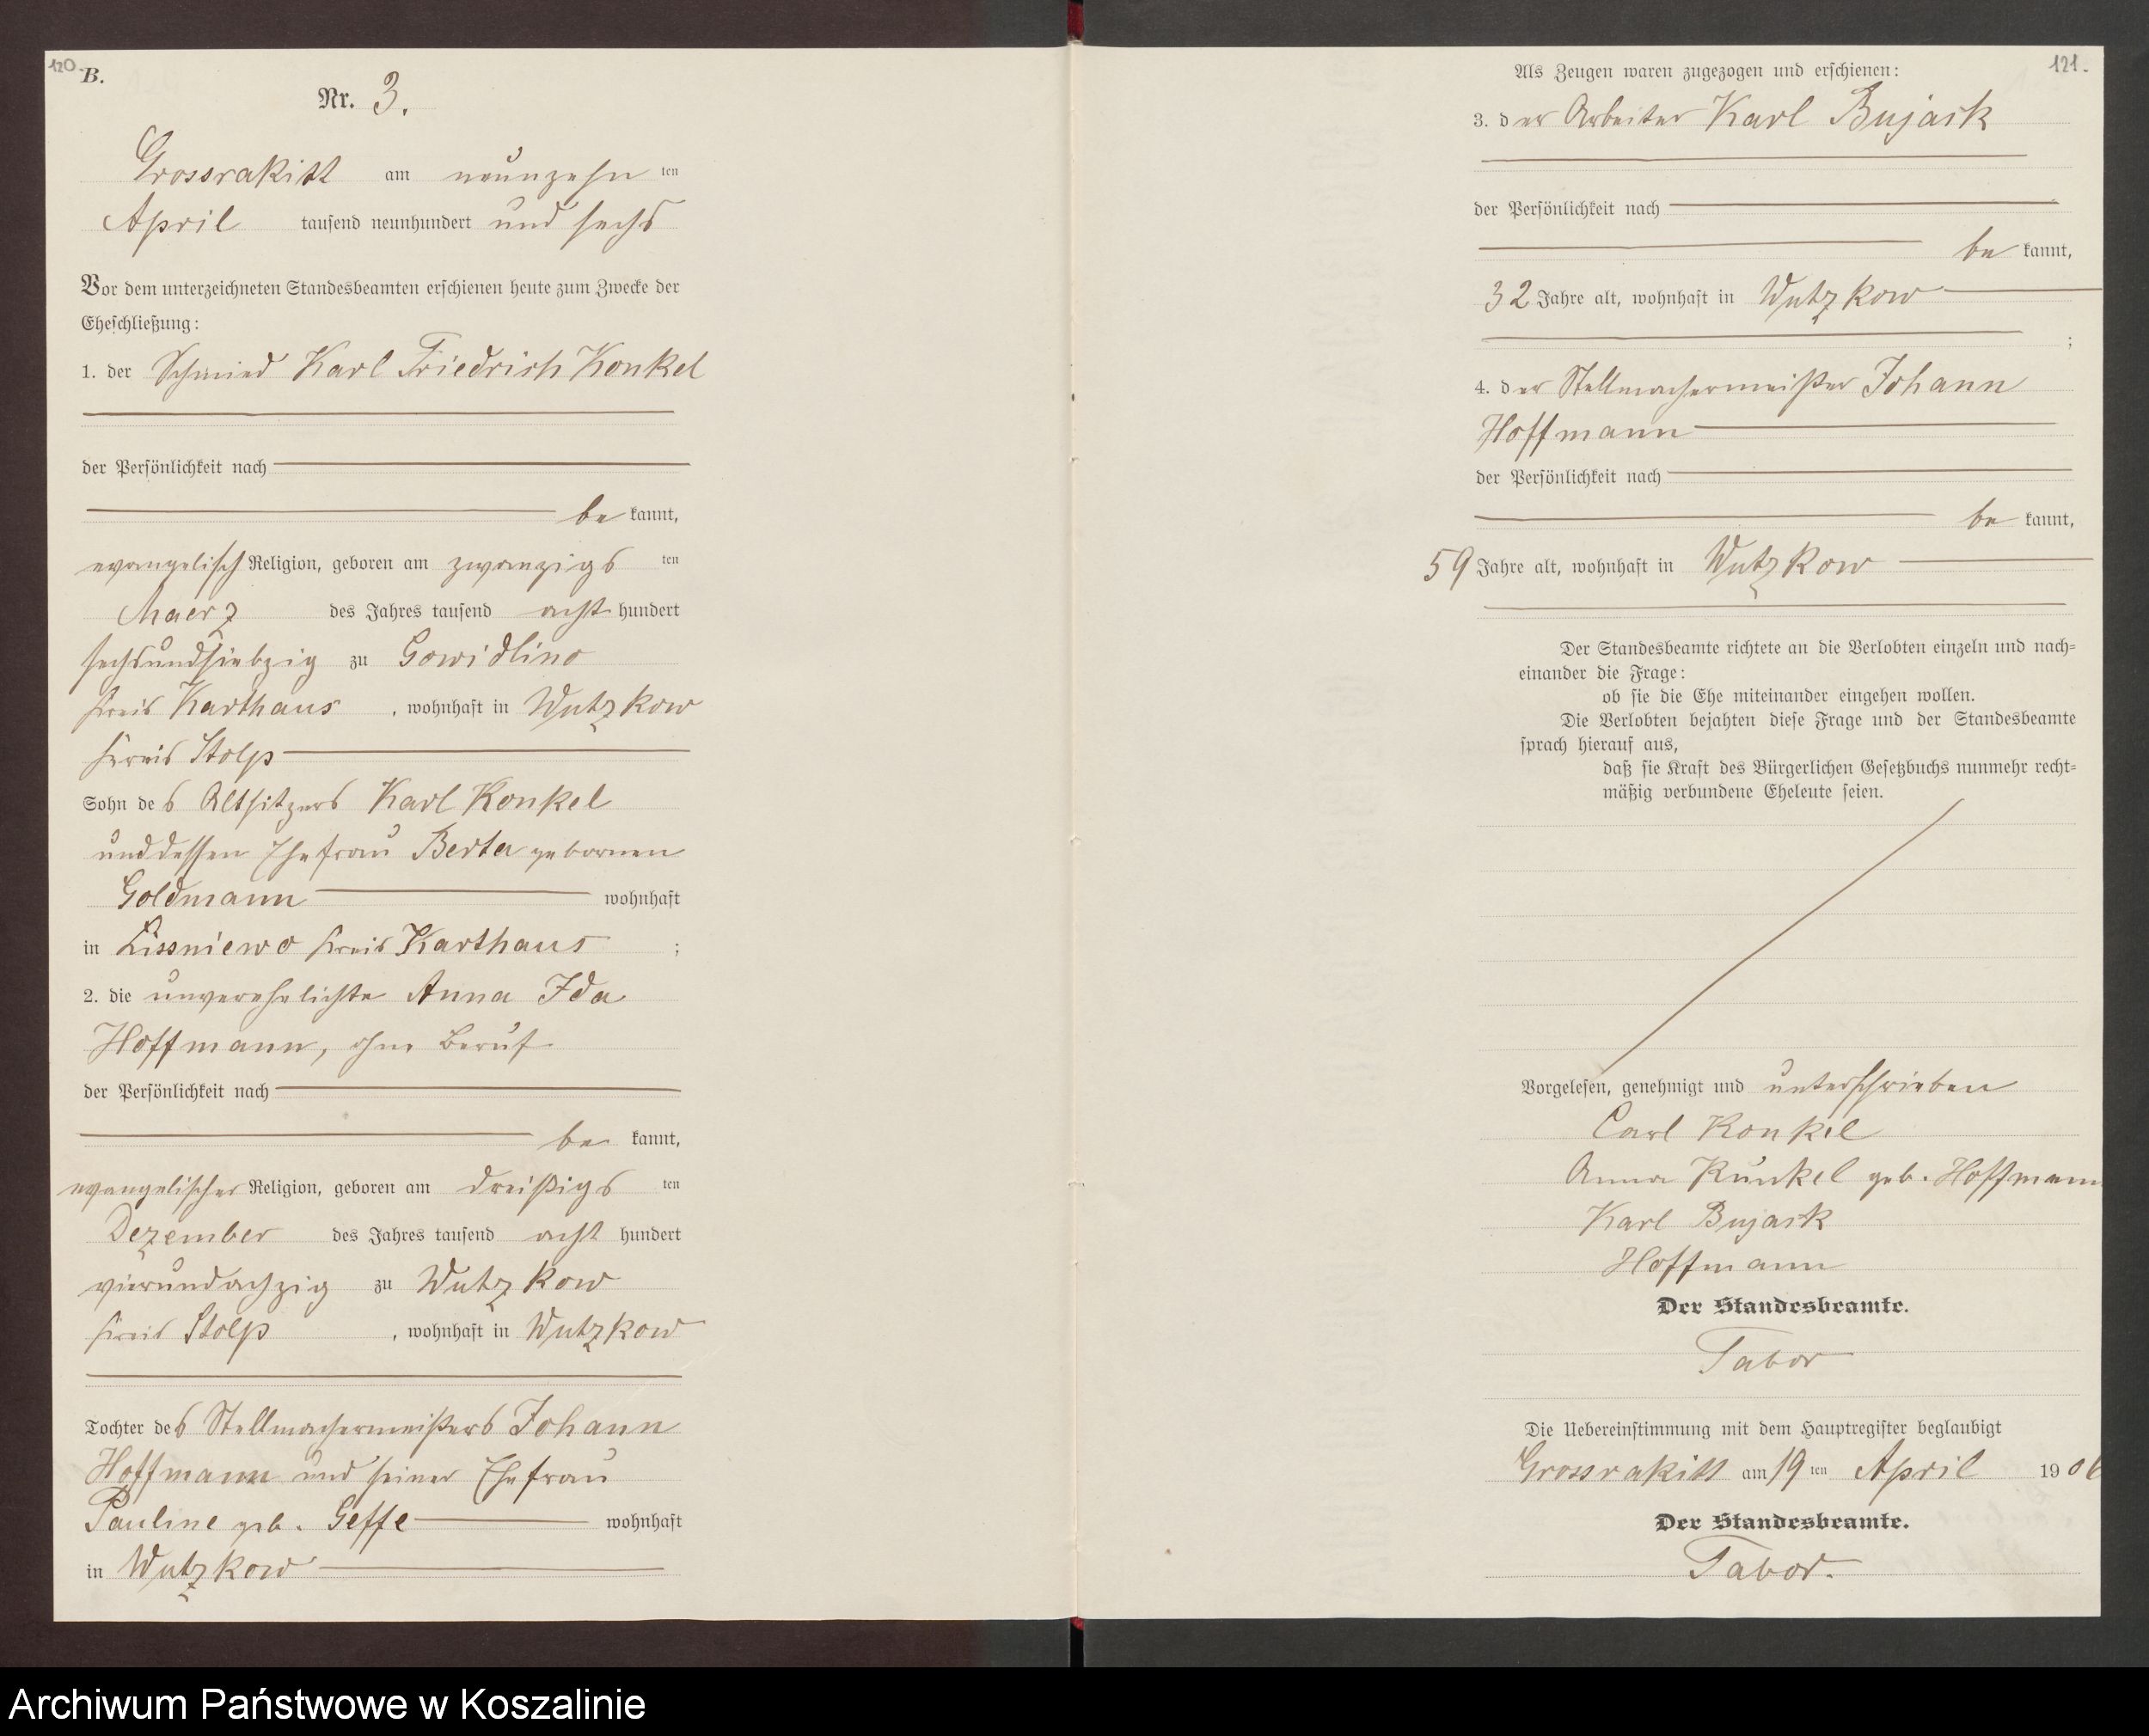 120.
B.
Nr. 3.
Grossrakitt am neunzehn ten
April tausend neunhundert und sechs
Vor dem unterzeichneten Standesbeamten erschienen heute zum Zwecke der
Eheschließung:
1. der Schmied Karl Friedrich Konkel
der Persönlichkeit nach
be kannt,
evangelisch Religion, geboren am zwanzigs ten
Maerz des Jahres tausend acht hundert
sechsundsiebzig zu Gowidlino
Kreis Karthaus , wohnhaft in Wutzkow
Kreis Stolp
Sohn des Altsitzers Karl Konkel
und dessen Ehefrau Berta gebornen
Goldmann wohnhaft
in Lissniewo Kreis Karthaus ;
2. die unverehelichte Anna Ida
Hoffmann, ohne Beruf
der Persönlichkeit nach
be kannt,
evangelischer Religion, geboren am dreißigs ten
Dezember des Jahres tausend acht hundert
vierundachzig zu Wutzkow
Kreis Stolp , wohnhaft in Wutzkow
Tochter des Stellmachermeisters Johann
Hoffmann und seiner Ehefrau
Pauline geb. Geffe wohnhaft
in Wutzkow
121.
Als Zeugen waren zugezogen und erschienen:
3. der Arbeiter Karl Bujack
der Persönlichkeit nach
be kannt,
32 Jahre alt, wohnhaft in Wutzkow
;
4. der Stellmachermeister Johann
Hoffmann
der Persönlichkeit nach
be kannt,
59 Jahre alt, wohnhaft in Wutzkow
Der Standesbeamte richtete an die Verlobten einzeln und nach-
einander die Frage:
ob sie die Ehe miteinander eingehen wollen.
Die Verlobten bejahten diese Frage und der Standesbeamte
sprach hierauf aus,
daß sie Kraft des Bürgerlichen Gesetzbuchs nunmehr recht-
mäßig verbundene Eheleute seien.
Vorgelesen, genehmigt und unterschrieben
Carl Konkel
Anna Kunkel geb. Hoffmann
Karl Bujack
Hoffmann
Der Standesbeamte.
Tabor
Die Uebereinstimmung mit dem Hauptregister beglaubigt
Grossrakitt am 19 ten April 1906
Der Standesbeamte.
Tabor.
Archiwum Państwowe w Koszalinie